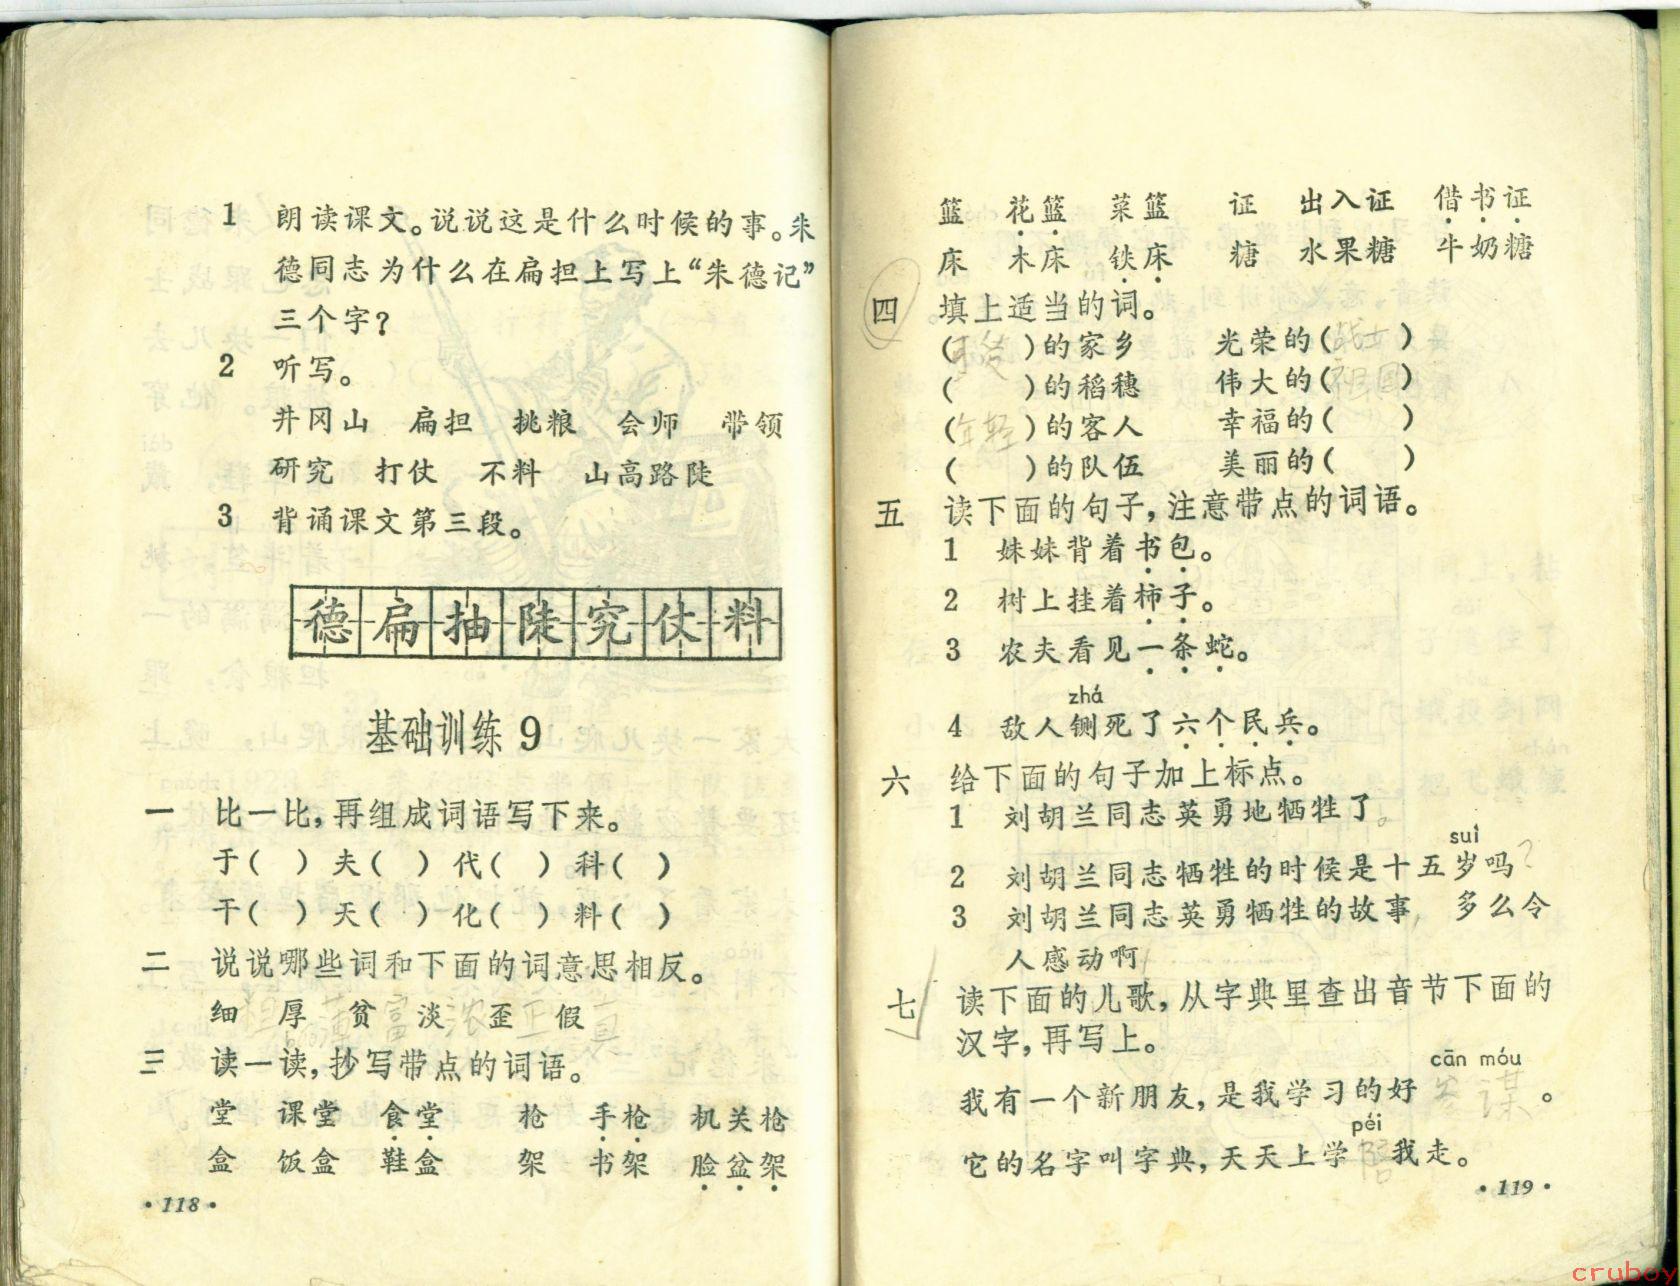 1 朗读课文。说说这是什么时候的事。朱
德同志为什么在扁担上写上“朱德记”
三个字?
2 听写。
井冈山 扁担 挑粮 会师 带领
研究 打仗 不料 山高路陡
3 背诵课文第三段。
德扁抽陡究仗料
基础训练 9
一 比一比,再组成词语写下来。
于( ) 夫( ) 代( ) 科( )
干( ) 天( ) 化( ) 料( )
二 说说哪些词和下面的词意思相反。
细 粗 厚 薄 贫 富 淡 浓 歪 正 假 真
三 读一读,抄写带点的词语。
堂 课堂 食堂 枪 手枪 机关枪
盒 饭盒 鞋盒 架 书架 脸盆架
·118·
篮 花篮 菜篮 证 出入证 借书证
床 木床 铁床 糖 水果糖 牛奶糖
四 填上适当的词。
( )的家乡 光荣的(战士)
( )的稻穗 伟大的(祖国)
(年轻)的客人 幸福的( )
( )的队伍 美丽的( )
五 读下面的句子,注意带点的词语。
1 妹妹背着书包。
2 树上挂着柿子。
3 农夫看见一条蛇。
zhá
4 敌人铡死了六个民兵。
六 给下面的句子加上标点。
1 刘胡兰同志英勇地牺牲了。
suì
2 刘胡兰同志牺牲的时候是十五岁吗?
3 刘胡兰同志英勇牺牲的故事,多么令
人感动啊!
七 读下面的儿歌,从字典里查出音节下面的
汉字,再写上。
cān móu
我有一个新朋友,是我学习的好 谋。
péi
它的名字叫字典,天天上学陪我走。
·119·
cruboy